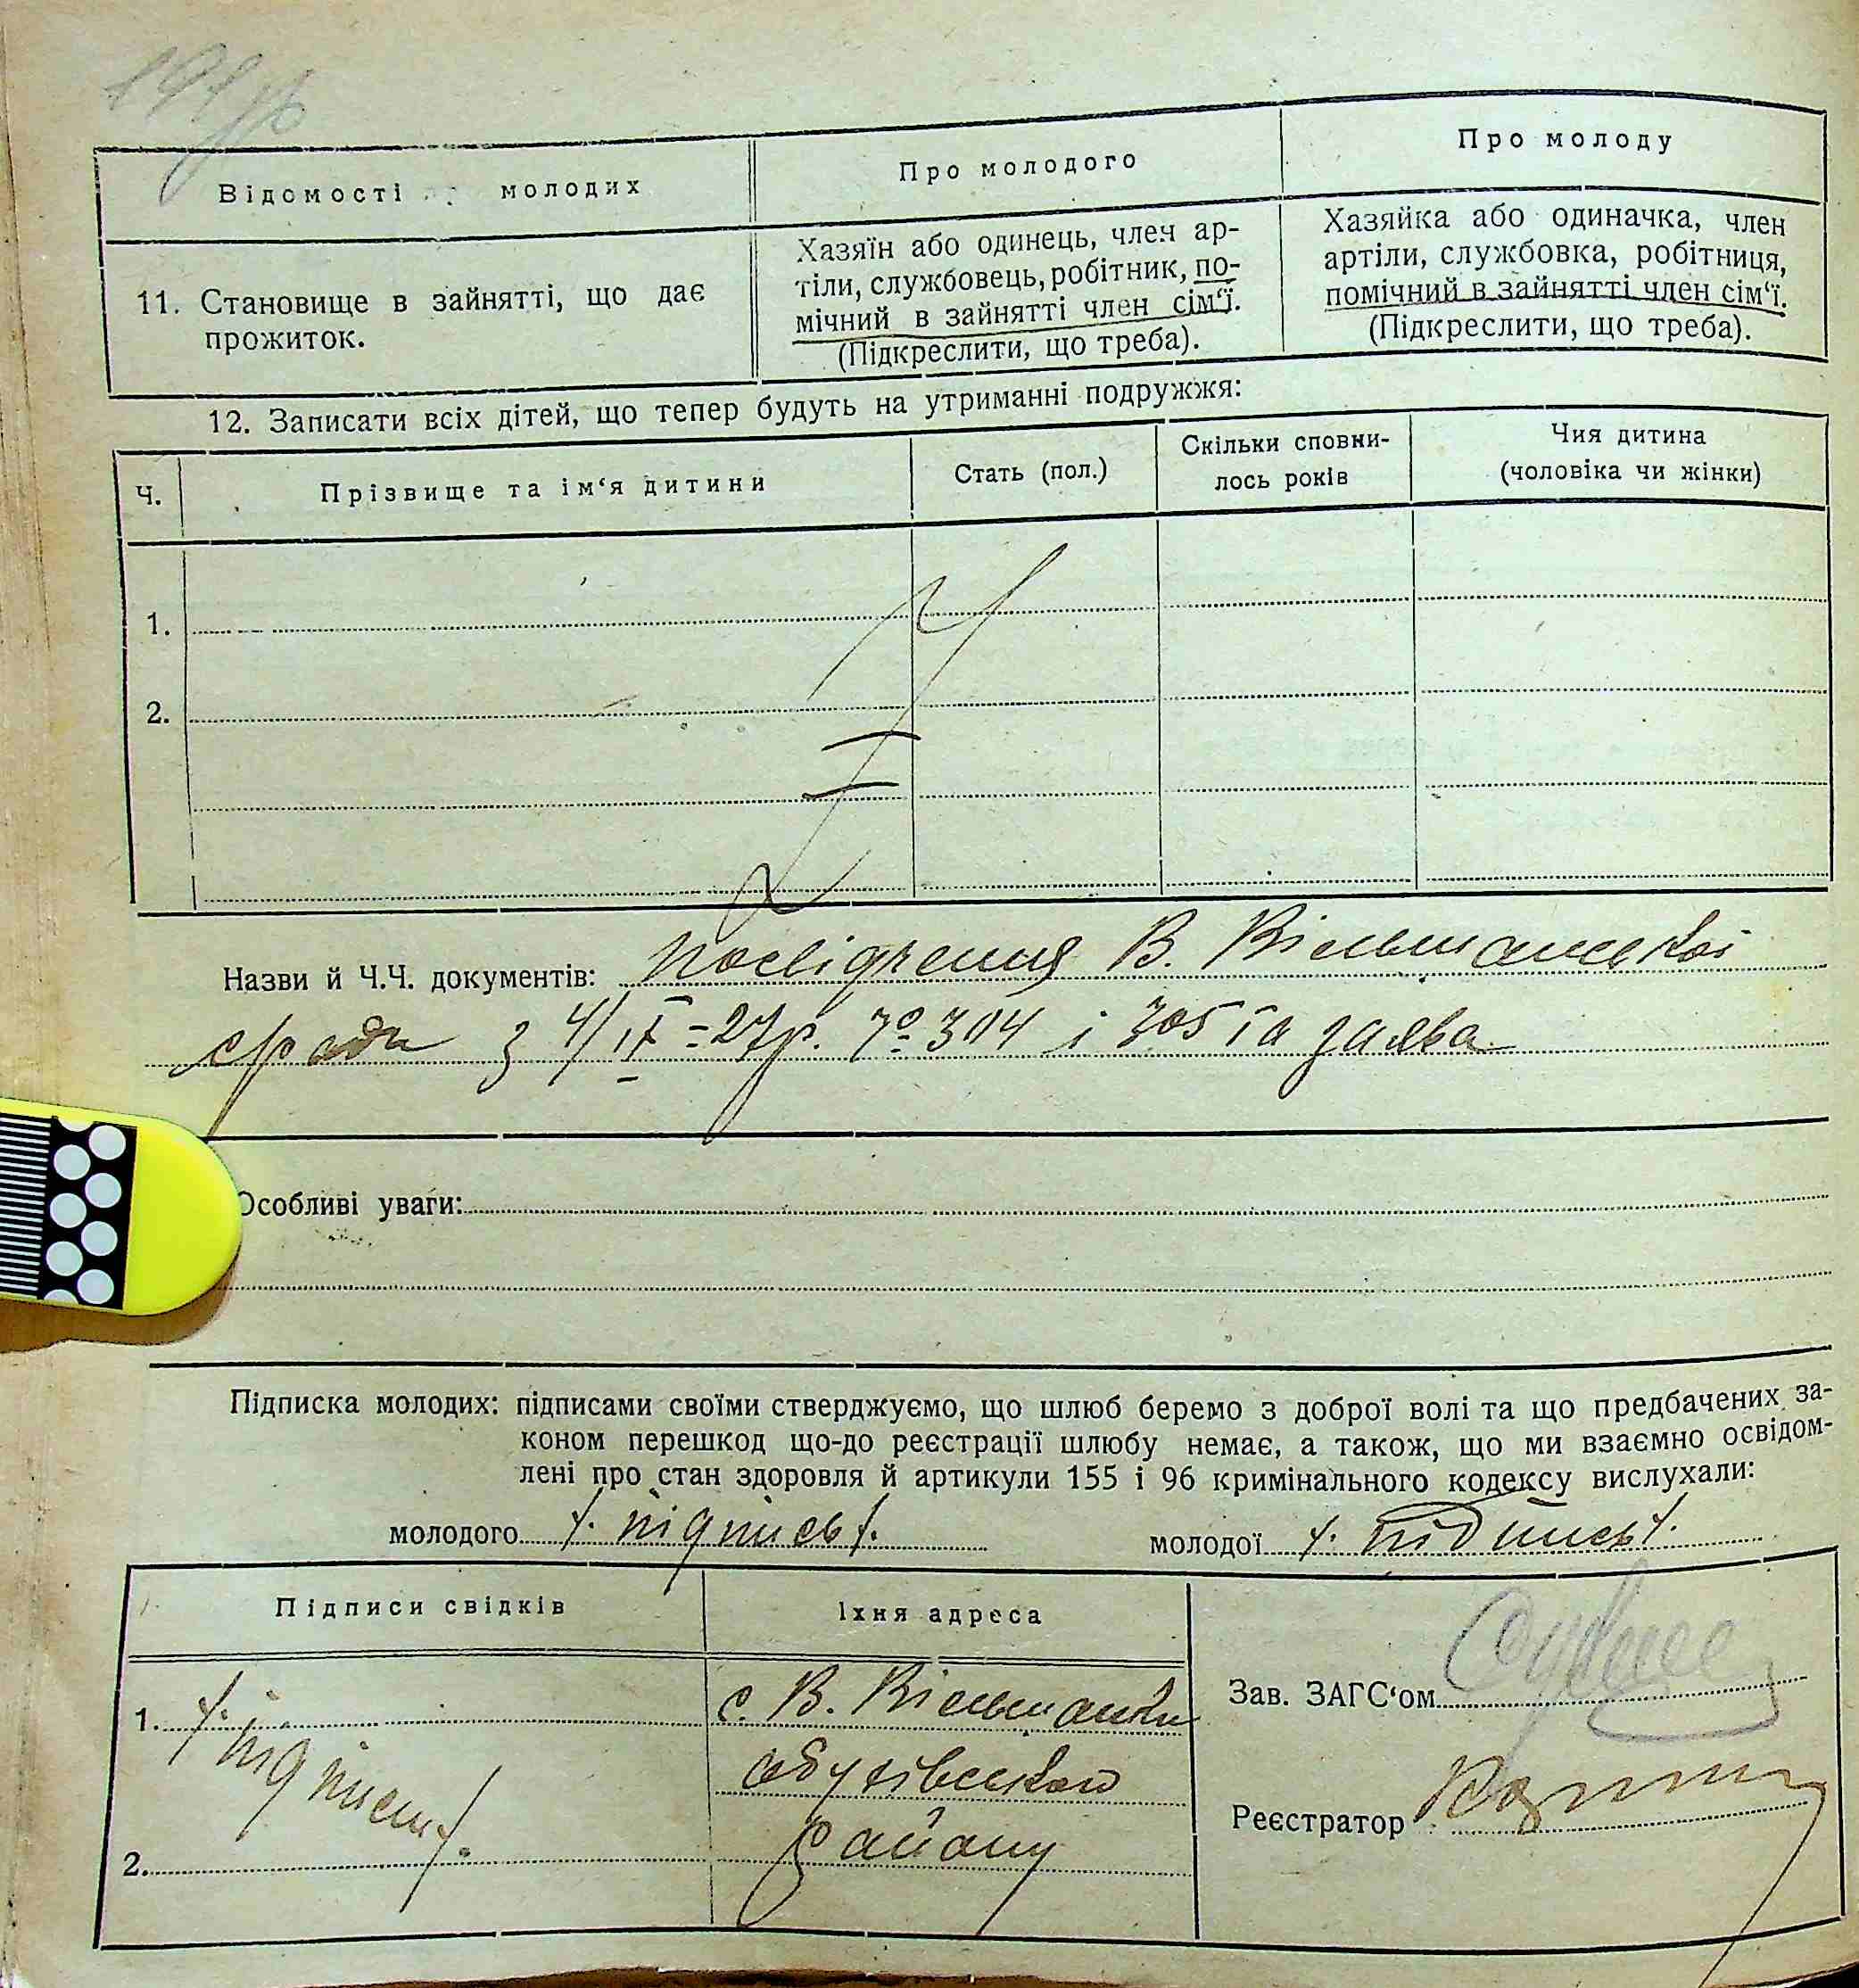 Відомості молодих
Про молодого
Про молоду
11. Становище в зайнятті, що дає
прожиток.
Хазяїн або одинець, член ар-
тіли, службовець, робітник, по-
мічний в зайнятті член сім‘ї.
(Підкреслити, що треба).
Хазяйка або одиначка, член
артіли, службовка, робітниця,
помічний в зайнятті член сім‘ї.
(Підкреслити, що треба).
12. Записати всіх дітей, що тепер будуть на утриманні подружжя:
Ч.
Прізвище та ім‘я дитини
Стать (пол.)
Скільки сповни-
лось років
Чия дитина
(чоловіка чи жінки)
1.
2.
Назви й Ч.Ч. документів: посвідчення В. Вільшанської
с/ради з 4/IX-27р. № 304 і 305 та заява
Особливі уваги:
Підписка молодих: підписами своїми стверджуємо, що шлюб беремо з доброї волі та що предбачених за-
коном перешкод що-до реєстрації шлюбу немає, а також, що ми взаємно освідом-
лені про стан здоровля й артикули 155 і 96 кримінального кодексу вислухали:
молодого /. підпись /. молодої /. підпись /.
Підписи свідків
Їхня адреса
1. /. підписи /.
2.
с. В. Вільшанки
обухівського
району
Зав. ЗАГС‘ом
Реєстратор